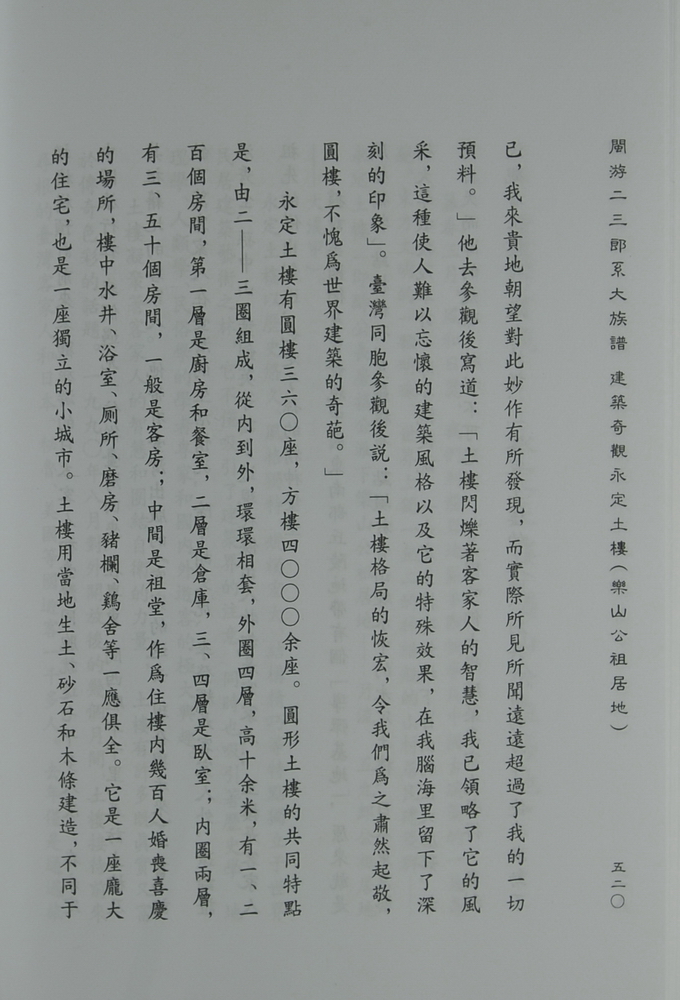 閩游二三郎系大族譜 建築奇觀永定土樓（樂山公祖居地） 五二〇
已，我來貴地朝望對此妙作有所發現，而實際所見所聞遠遠超過了我的一切
預料。」他去參觀後寫道：「土樓閃爍著客家人的智慧，我已領略了它的風
采，這種使人難以忘懷的建築風格以及它的特殊效果，在我腦海里留下了深
刻的印象」。臺灣同胞參觀後説：「土樓格局的恢宏，令我們爲之肅然起敬，
圓樓，不愧爲世界建築的奇葩。」
永定土樓有圓樓三六〇座，方樓四〇〇〇余座。圓形土樓的共同特點
是，由二——三圈組成，從内到外，環環相套，外圈四層，高十余米，有一、二
百個房間，第一層是廚房和餐室，二層是倉庫，三、四層是臥室；内圈兩層，
有三、五十個房間，一般是客房；中間是祖堂，作爲住樓内幾百人婚喪喜慶
的場所，樓中水井、浴室、厠所、磨房、豬欄、鷄舍等一應俱全。它是一座龐大
的住宅，也是一座獨立的小城市。土樓用當地生土、砂石和木條建造，不同于